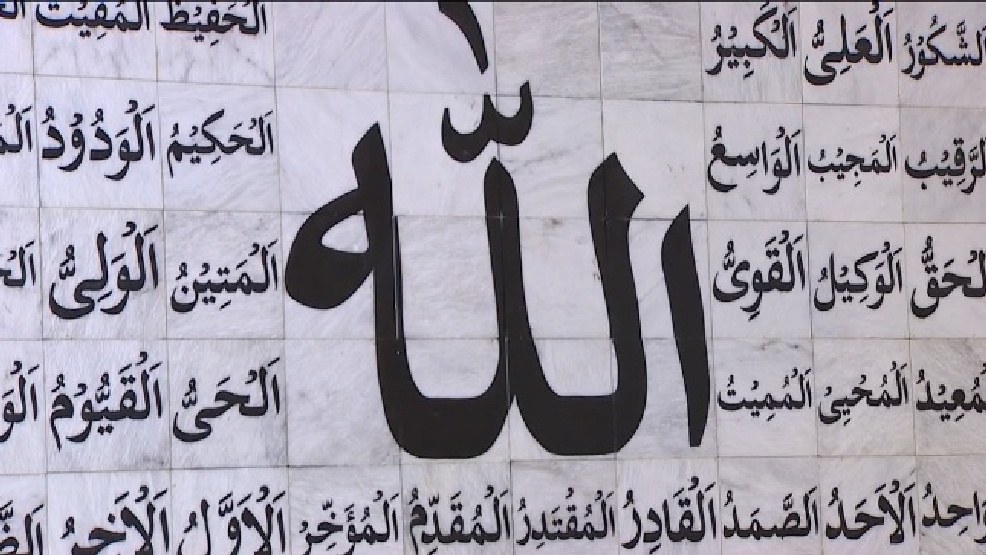 الشَّكُوْرُ اَلْعَلِىُّ اَلْكَبِيْرُ اَلْحَفِيْظُ اَلْمُقِيْتُ
الرَّقِيْبُ اَلْمُجِيْبُ اَلْوَاسِعُ اَلْحَكِيْمُ اَلْوَدُوْدُ
الله
الْحَقُّ اَلْوَكِيْلُ اَلْقَوِىُّ اَلْمَتِيْنُ اَلْوَلِىُّ
الْمُعِيْدُ اَلْمُحْيِىْ اَلْمُمِيْتُ اَلْحَىُّ اَلْقَيُّوْمُ
وَاحِدُ اَلْاَحَدُ اَلصَّمَدُ اَلْقَادِرُ اَلْمُقْتَدِرُ اَلْمُقَدِّمُ اَلْمُؤَخِّرُ اَلْاَوَّلُ اَلْاَخِرُ